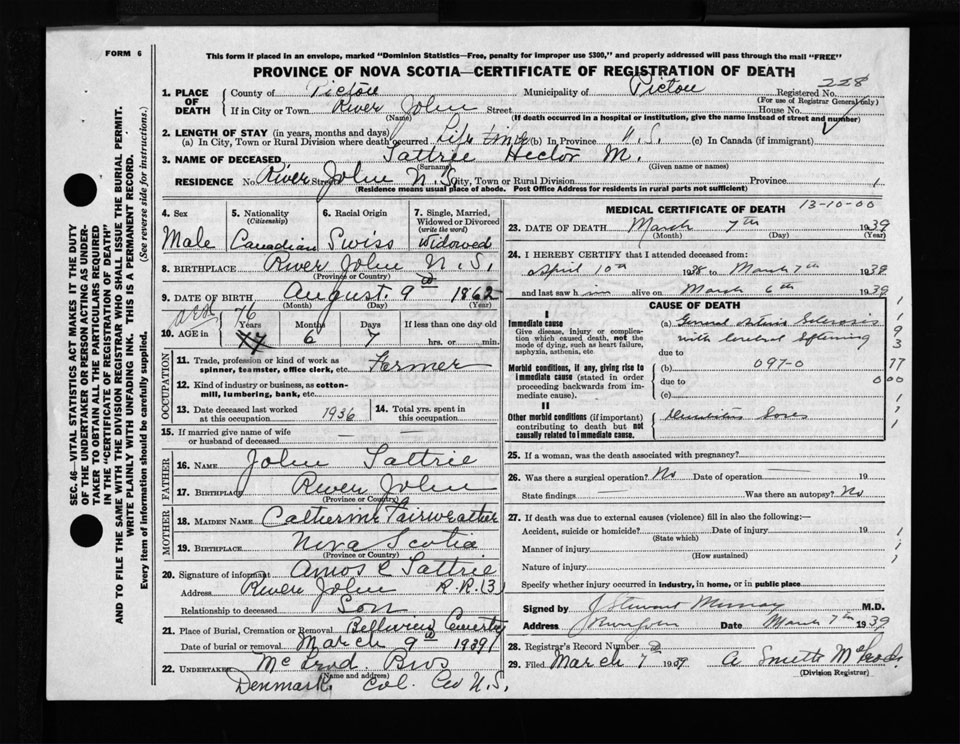 FORM 6
This form if placed in an envelope, marked "Dominion Statistics—Free, penalty for improper use $300," and properly addressed will pass through the mail "FREE"
PROVINCE OF NOVA SCOTIA—CERTIFICATE OF REGISTRATION OF DEATH
228
1. PLACE OF DEATH County of Pictou Municipality of Pictou Registered No.
(For use of Registrar General only)
If in City or Town River John Street House No.
(Name) (If death occurred in a hospital or institution, give the name instead of street and number)
2. LENGTH OF STAY (in years, months and days)
(a) In City, Town or Rural Division where death occurred Life time (b) In Province N.S. (c) In Canada (if immigrant)
3. NAME OF DECEASED Sattrie Hector M.
(Surname) (Given name or names)
RESIDENCE No. River Street John N.S. City, Town or Rural Division Province
(Residence means usual place of abode. Post Office Address for residents in rural parts not sufficient)
4. Sex Male
5. Nationality (Citizenship) Canadian
6. Racial Origin Swiss
7. Single, Married, Widowed or Divorced (write the word) Widowed
8. BIRTHPLACE River John N.S.
(Province or Country)
9. DATE OF BIRTH August 9th 1862
(Month) (Day) (Year)
10. AGE in 76 77 Years 6 Months 7 Days If less than one day old hrs. or min.
OCCUPATION
11. Trade, profession or kind of work as spinner, teamster, office clerk, etc. Farmer
12. Kind of industry or business, as cotton-mill, lumbering, bank, etc.
13. Date deceased last worked at this occupation 1936
14. Total yrs. spent in this occupation
15. If married give name of wife or husband of deceased — —
FATHER
16. NAME John Sattrie
17. BIRTHPLACE River John
(Province or Country)
MOTHER
18. MAIDEN NAME Catherine Fairweather
19. BIRTHPLACE Nova Scotia
(Province or Country)
20. Signature of informant Amos C Sattrie
Address River John R.R.13
Relationship to deceased Son
21. Place of Burial, Cremation or Removal Bellview Cemetery
Date of burial or removal March 9th 1939
22. UNDERTAKER McLeod Bros
(Name and address)
Denmark Col. Co N.S.
MEDICAL CERTIFICATE OF DEATH 13-10-00
23. DATE OF DEATH March 7th 1939
(Month) (Day) (Year)
24. I HEREBY CERTIFY that I attended deceased from:
April 10th 1938 to March 7th 1939
and last saw him alive on March 6th 1939
CAUSE OF DEATH
I
Immediate cause
Give disease, injury or complication which caused death, not the mode of dying, such as heart failure, asphyxia, asthenia, etc
(a) General Arterio Sclerosis
with Cerebral Softening
due to
Morbid conditions, if any, giving rise to immediate cause (stated in order proceeding backwards from immediate cause).
(b) 097-0
due to
(c)
II
Other morbid conditions (if important) contributing to death but not causally related to immediate cause.
Decubitus Sores
25. If a woman, was the death associated with pregnancy?
26. Was there a surgical operation? No Date of operation — 19
State findings — Was there an autopsy? No
27. If death was due to external causes (violence) fill in also the following:—
Accident, suicide or homicide? Date of injury 19
(State which)
Manner of injury
(How sustained)
Nature of injury
Specify whether injury occurred in industry, in home, or in public place
Signed by J Stewart Murray M.D.
Address Date March 7th 1939
28. Registrar's Record Number
29. Filed March 7 1939 A Smith McLeod
(Division Registrar)
SEC. 46—VITAL STATISTICS ACT MAKES IT THE DUTY
OF THE UNDERTAKER OR PERSON ACTING AS UNDERTAKER
TO OBTAIN ALL THE PARTICULARS REQUIRED
IN THE "CERTIFICATE OF REGISTRATION OF DEATH"
AND TO FILE THE SAME WITH THE DIVISION REGISTRAR WHO SHALL ISSUE THE BURIAL PERMIT.
WRITE PLAINLY WITH UNFADING INK. THIS IS A PERMANENT RECORD.
Every item of information should be carefully supplied. (See reverse side for instructions.)